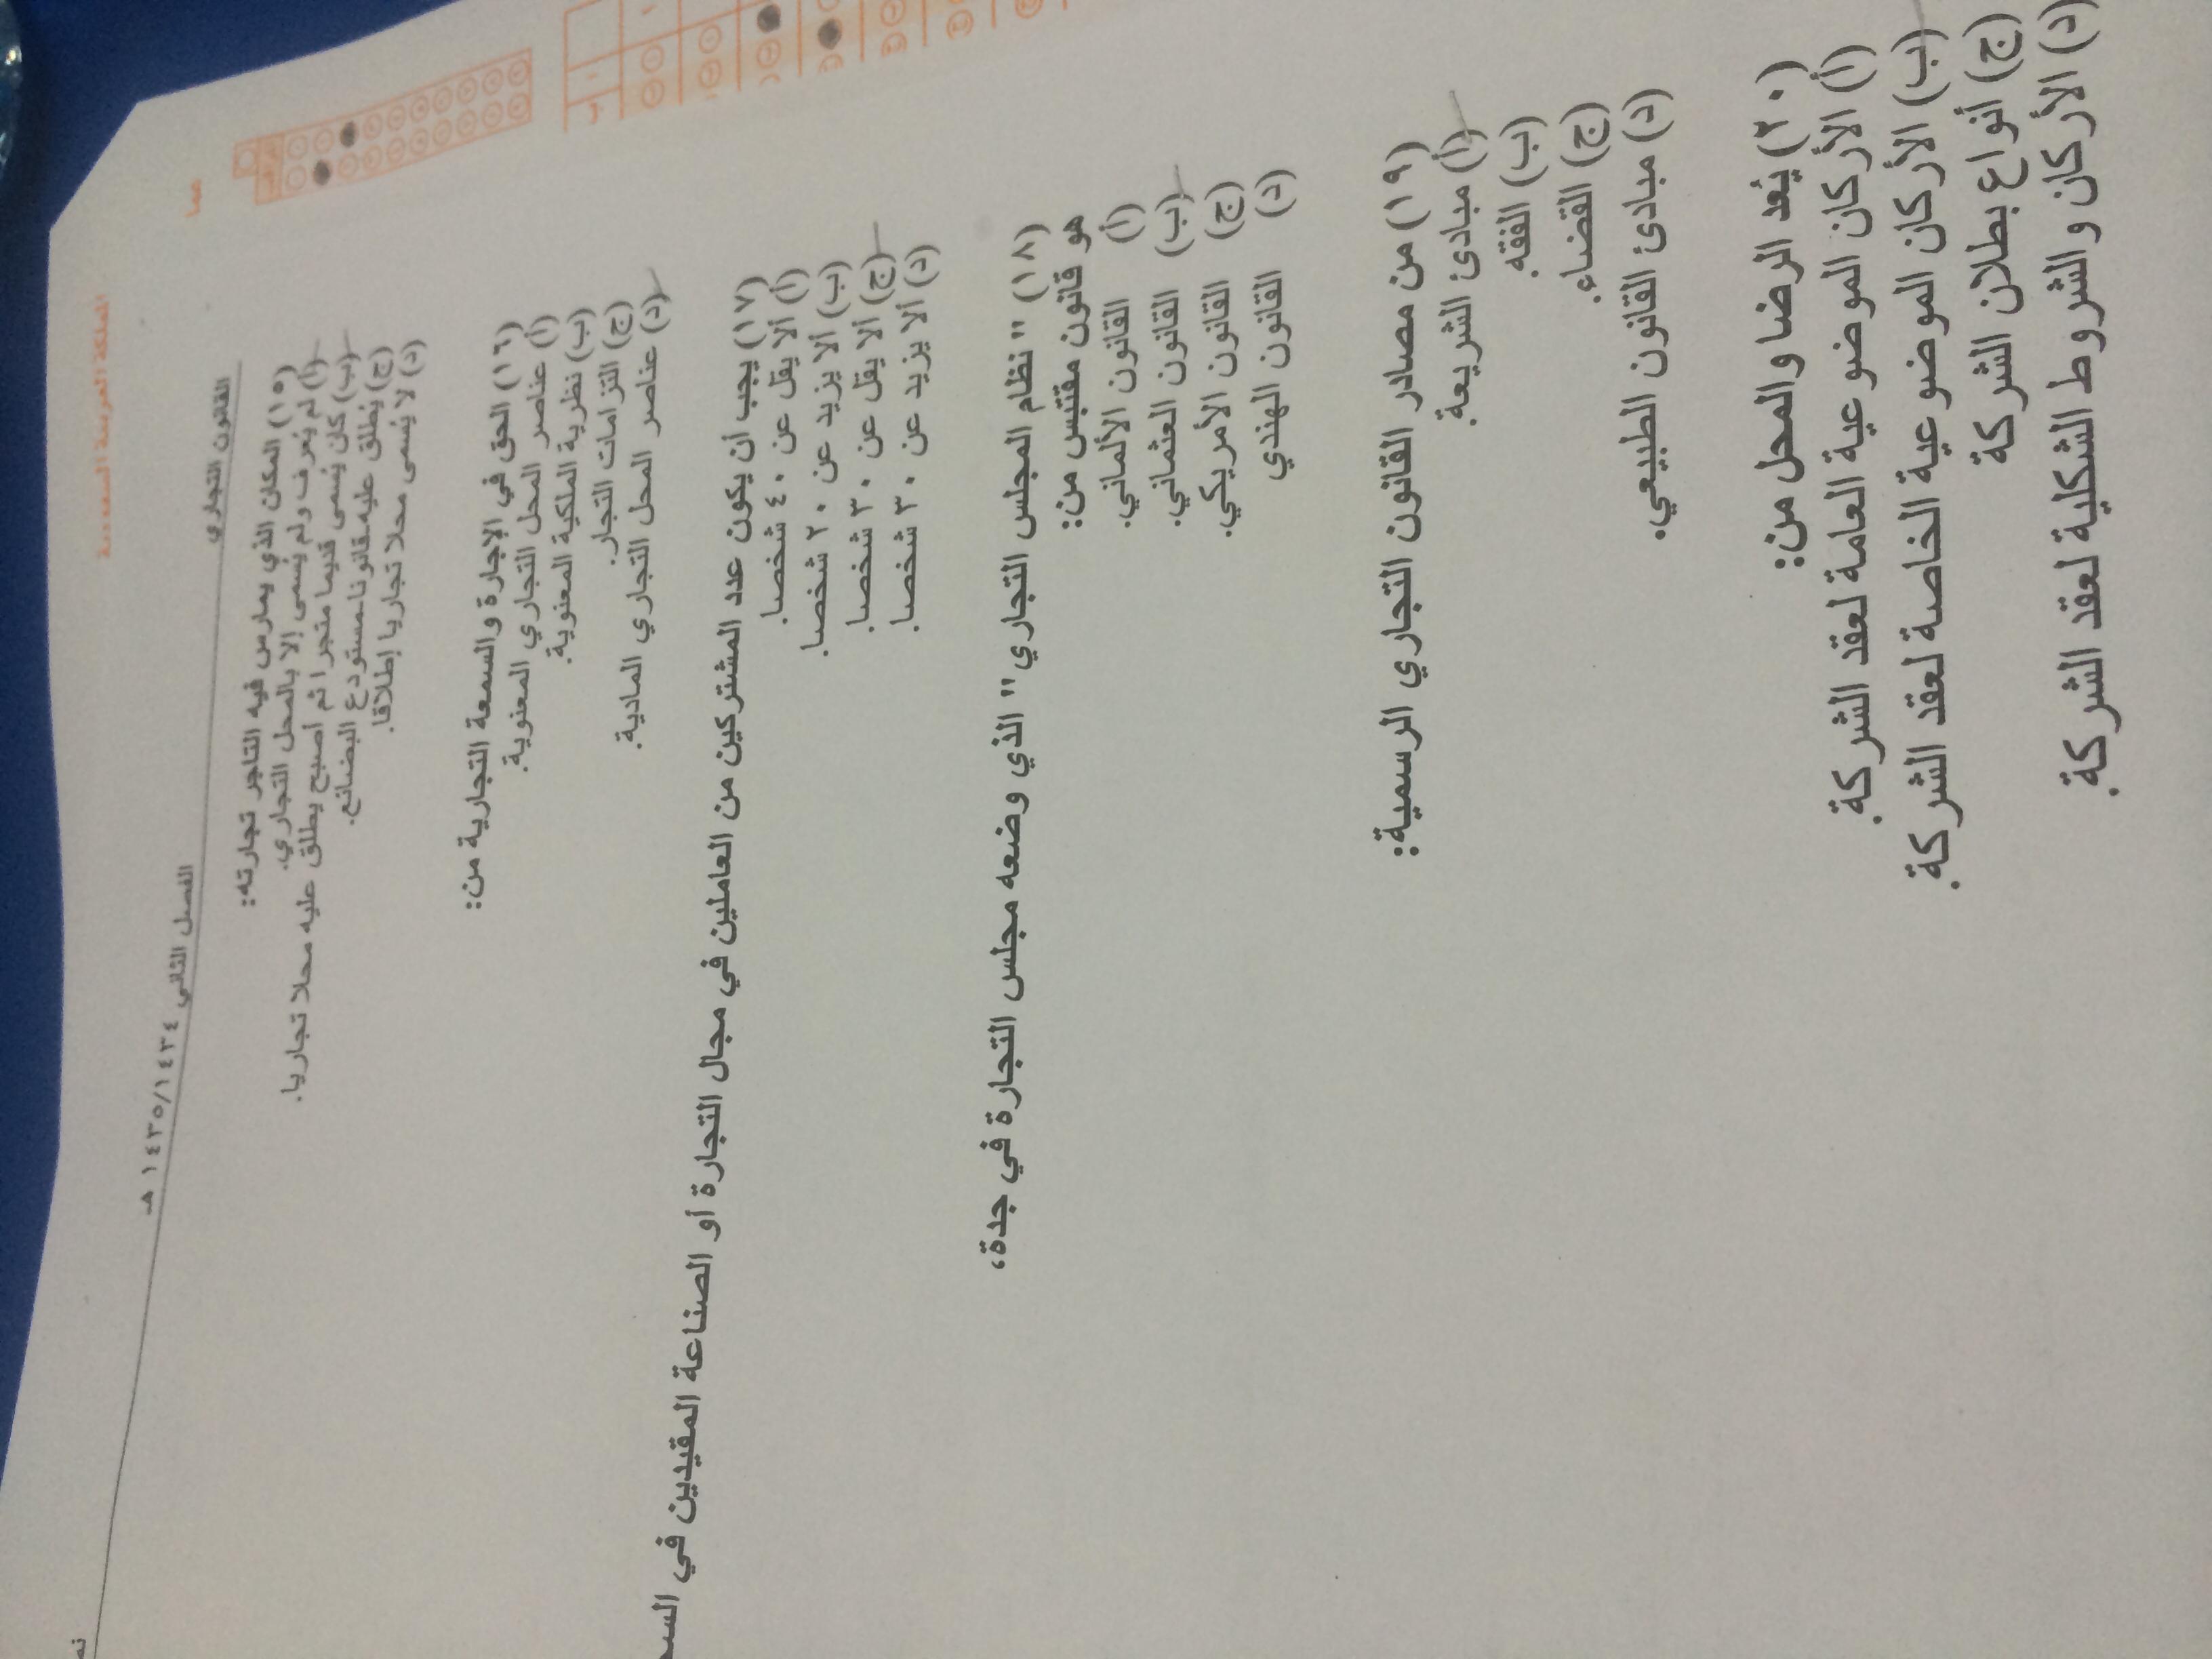 المملكة العربية السعودية
الفصل الثاني ١٤٣٥/١٤٣٤ هـ
القانون التجاري
١٥) المكان الذي يمارس فيه التاجر تجارته:
(أ) لم يُعرف ولم يُسمى إلا بالمحل التجاري.
(ب) كان يُسمى قديما متجرا ثم أصبح يطلق عليه محلا تجاريا.
(ج) يُطلق عليه قانونا مستودع البضائع.
(د) لا يُسمى محلا تجاريا إطلاقا.
١٦) الحق في الإجارة والسمعة التجارية من:
(أ) عناصر المحل التجاري المعنوية.
(ب) نظرية الملكية المعنوية.
(ج) التزامات التجار.
(د) عناصر المحل التجاري المادية.
١٧) يجب أن يكون عدد المشتركين من العاملين في مجال التجارة أو الصناعة المقيدين في
(أ) ألا يقل عن ٤٠ شخصا.
(ب) ألا يزيد عن ٢٠ شخصا.
(ج) ألا يقل عن ٣٠ شخصا.
(د) ألا يزيد عن ٣٠ شخصا.
١٨) " نظام المجلس التجاري" الذي وضعه مجلس التجارة في جدة،
هو قانون مقتبس من:
(أ) القانون الألماني.
(ب) القانون العثماني.
(ج) القانون الأمريكي.
(د) القانون الهندي
١٩) من مصادر القانون التجاري الرسمية:
(أ) مبادئ الشريعة.
(ب) الفقه.
(ج) القضاء.
(د) مبادئ القانون الطبيعي.
٢٠) يُعد الرضا والمحل من:
(أ) الأركان الموضوعية العامة لعقد الشركة.
(ب) الأركان الموضوعية الخاصة لعقد الشركة.
(ج) أنواع بطلان الشركة
(د) الأركان والشروط الشكلية لعقد الشركة.